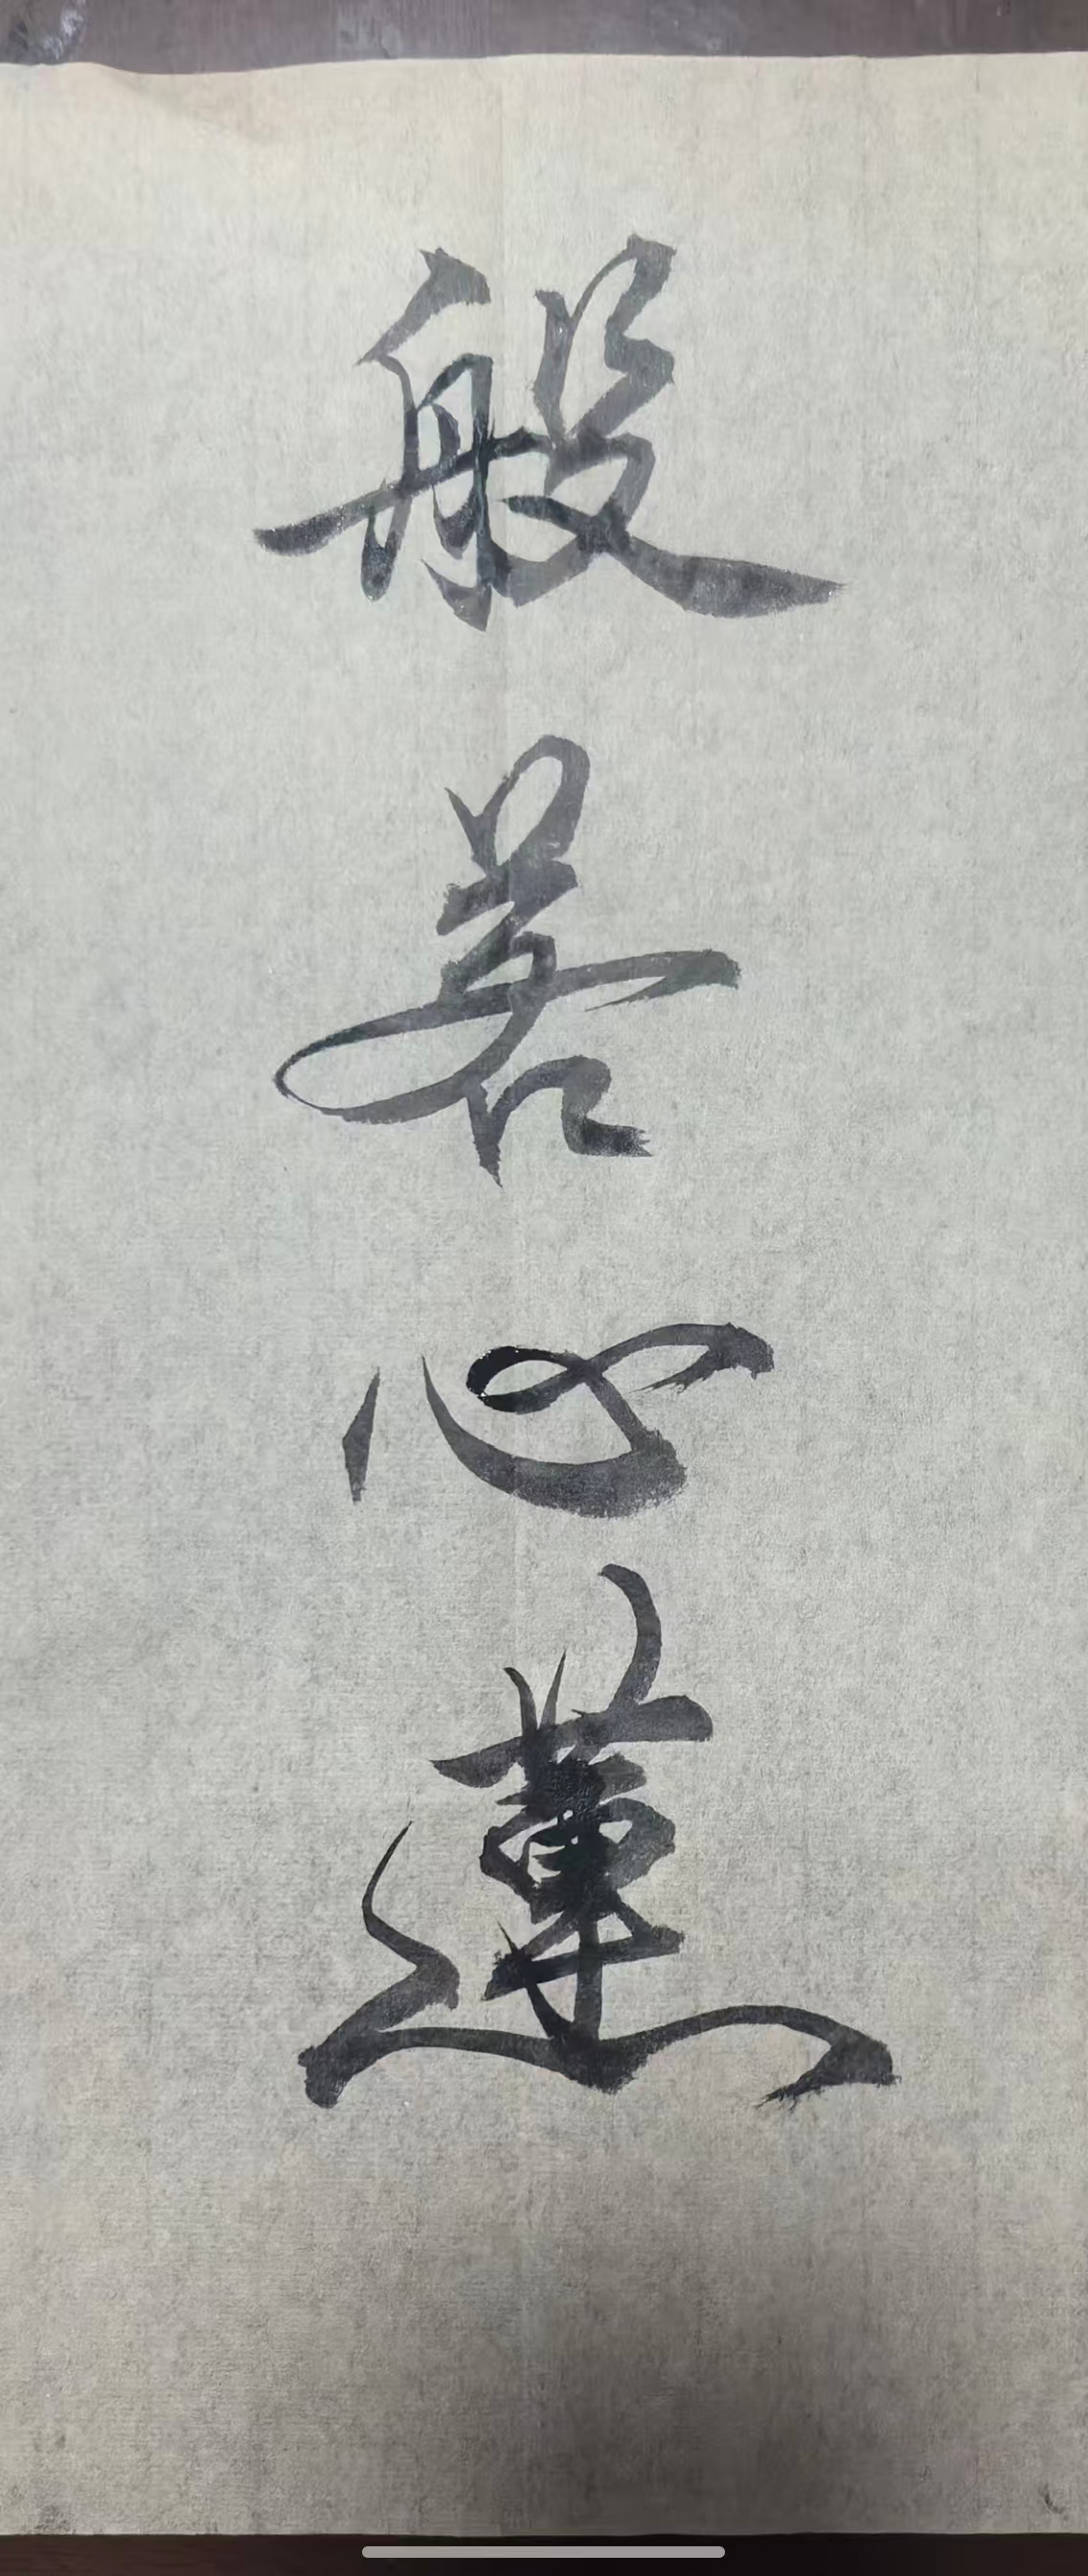 般若心蓮